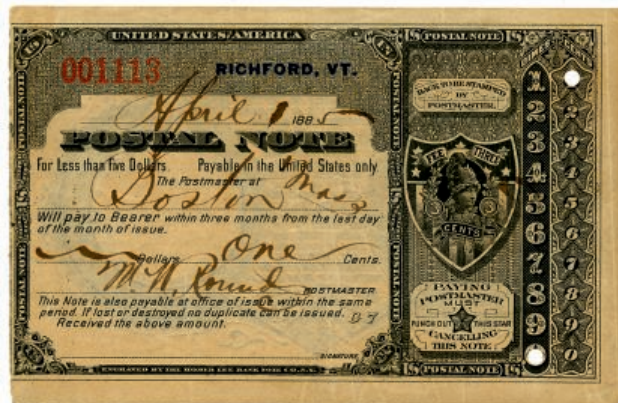 UNITED STATES AMERICA
001113
RICHFORD, VT.
April 1 1885
POSTAL NOTE
For Less than Five Dollars Payable in the United States only
The Postmaster at
Boston Mass
Will pay to Bearer within three months from the last day
of the month of issue.
Dollars One Cents.
M. W. Rounds POSTMASTER
This Note is also payable at office of issue within the same
period. If lost or destroyed no duplicate can be issued.
Received the above amount.
SIGNATURE
ENGRAVED BY THE HOMER LEE BANK NOTE CO. N.Y.
POSTAL NOTE
POSTAL NOTE
POSTAL NOTE
POSTAL NOTE
POSTAL NOTE
BACK TO BE STAMPED
BY
POSTMASTER
FEE THREE
3 3
CENTS
PAYING
POSTMASTER
MUST
PUNCH OUT THIS STAR
CANCELLING
THIS NOTE
POSTAL NOTE
1
2
3
4
5
6
7
8
9
2
3
4
5
6
7
8
9
0